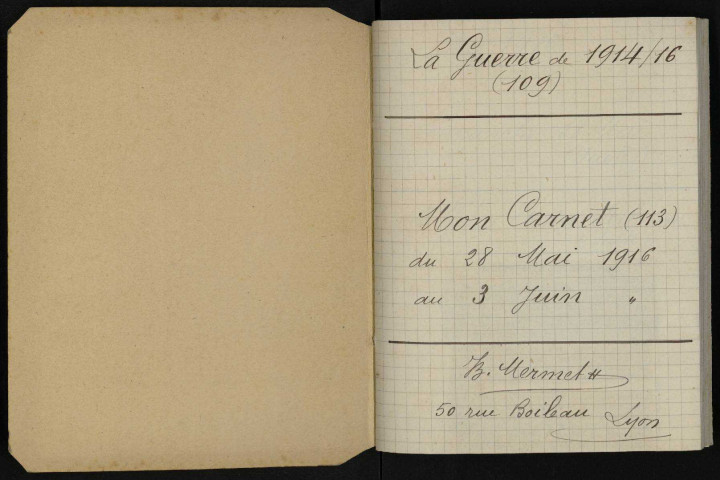 La Guerre de 1914/16
(109)
Mon Carnet (113)
du 28 Mai 1916
au 3 Juin "
B. Mermet
50 rue Boileau Lyon